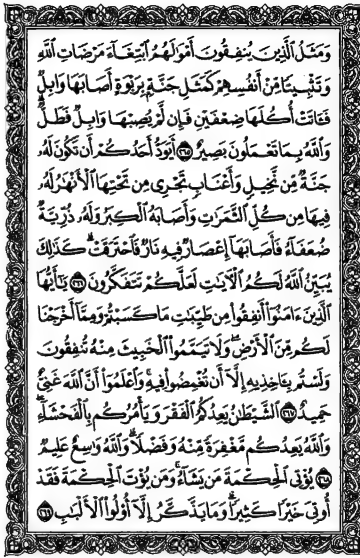 وَمَثَلُ الَّذِينَ يُنفِقُونَ أَمْوَالَهُمُ ابْتِغَاءَ مَرْضَاتِ اللَّهِ
وَتَثْبِيتًا مِّنْ أَنفُسِهِمْ كَمَثَلِ جَنَّةٍ بِرَبْوَةٍ أَصَابَهَا وَابِلٌ
فَآتَتْ أُكُلَهَا ضِعْفَيْنِ فَإِن لَّمْ يُصِبْهَا وَابِلٌ فَطَلٌّ
وَاللَّهُ بِمَا تَعْمَلُونَ بَصِيرٌ ٢٦٥ أَيَوَدُّ أَحَدُكُمْ أَن تَكُونَ لَهُ
جَنَّةٌ مِّن نَّخِيلٍ وَأَعْنَابٍ تَجْرِي مِن تَحْتِهَا الْأَنْهَارُ لَهُ
فِيهَا مِن كُلِّ الثَّمَرَاتِ وَأَصَابَهُ الْكِبَرُ وَلَهُ ذُرِّيَّةٌ
ضُعَفَاءُ فَأَصَابَهَا إِعْصَارٌ فِيهِ نَارٌ فَاحْتَرَقَتْ ۗ كَذَٰلِكَ
يُبَيِّنُ اللَّهُ لَكُمُ الْآيَاتِ لَعَلَّكُمْ تَتَفَكَّرُونَ ٢٦٦ يَا أَيُّهَا
الَّذِينَ آمَنُوا أَنفِقُوا مِن طَيِّبَاتِ مَا كَسَبْتُمْ وَمِمَّا أَخْرَجْنَا
لَكُم مِّنَ الْأَرْضِ ۖ وَلَا تَيَمَّمُوا الْخَبِيثَ مِنْهُ تُنفِقُونَ
وَلَسْتُم بِآخِذِيهِ إِلَّا أَن تُغْمِضُوا فِيهِ ۚ وَاعْلَمُوا أَنَّ اللَّهَ غَنِيٌّ
حَمِيدٌ ٢٦٧ الشَّيْطَانُ يَعِدُكُمُ الْفَقْرَ وَيَأْمُرُكُم بِالْفَحْشَاءِ ۖ
وَاللَّهُ يَعِدُكُم مَّغْفِرَةً مِّنْهُ وَفَضْلًا ۗ وَاللَّهُ وَاسِعٌ عَلِيمٌ
٢٦٨ يُؤْتِي الْحِكْمَةَ مَن يَشَاءُ ۚ وَمَن يُؤْتَ الْحِكْمَةَ فَقَدْ
أُوتِيَ خَيْرًا كَثِيرًا ۗ وَمَا يَذَّكَّرُ إِلَّا أُولُوا الْأَلْبَابِ ٢٦٩